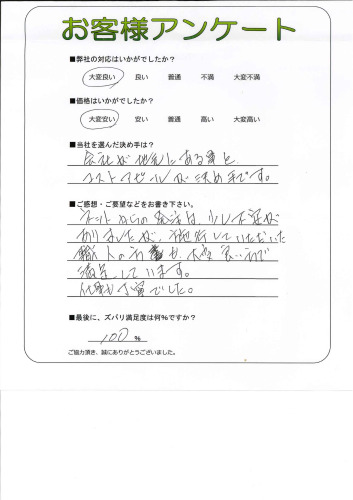 お客様アンケート
■弊社の対応はいかがでしたか？
大変良い 良い 普通 不満 大変不満
■価格はいかがでしたか？
大変安い 安い 普通 高い 大変高い
■当社を選んだ決め手は？
会社が地元にある事と
コストアピールが決め手です。
■ご感想・ご要望などをお書き下さい。
ネットからの発注は、少し不安が
ありましたが、施行していただいた
職人の方も、大変良い方で
満足しています。
仕事も丁寧でした。
■最後に、ズバリ満足度は何%ですか？
100 %
ご協力頂き、誠にありがとうございました。